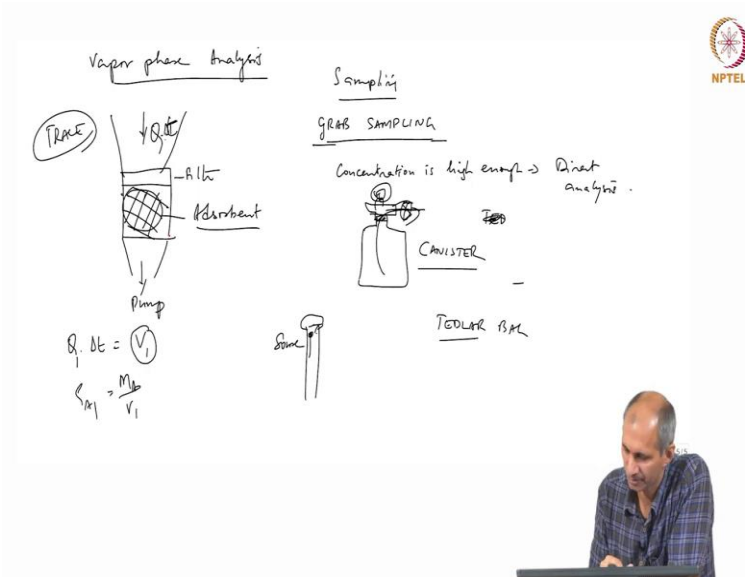 Vapor phase Analysis
TRACE
Q₁
Filt
Adsorbent
Pump
Q₁. Δt = V₁
ρA1 = MA / V₁
Sampling
GRAB SAMPLING
Concentration is high enough → Direct
analysis.
CANISTER
TEDLAR BAG
Source
NPTEL